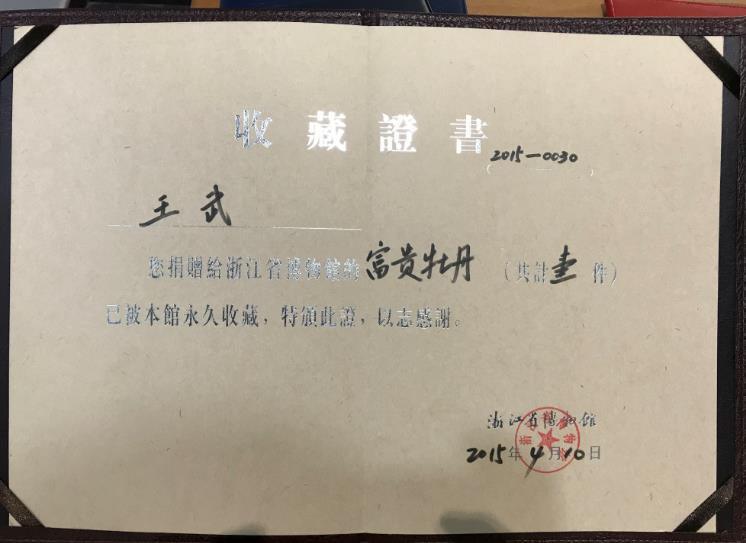 收藏證書
2015—0030
王武
您捐贈給浙江省博物館的富贵牡丹（共計壹件）
已被本館永久收藏，特頒此證，以志感謝。
浙江省博物館
2015年4月10日